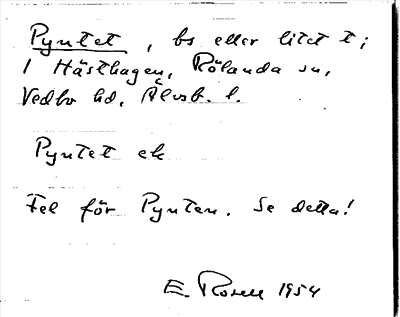 Pyntet, bs eller litet t;
1 Hästhagen, Rölanda sn,
Vedbo hd, Älvsb. l.
Pyntet ek
Fel för Pynten. Se detta!
E. Rosell 1954